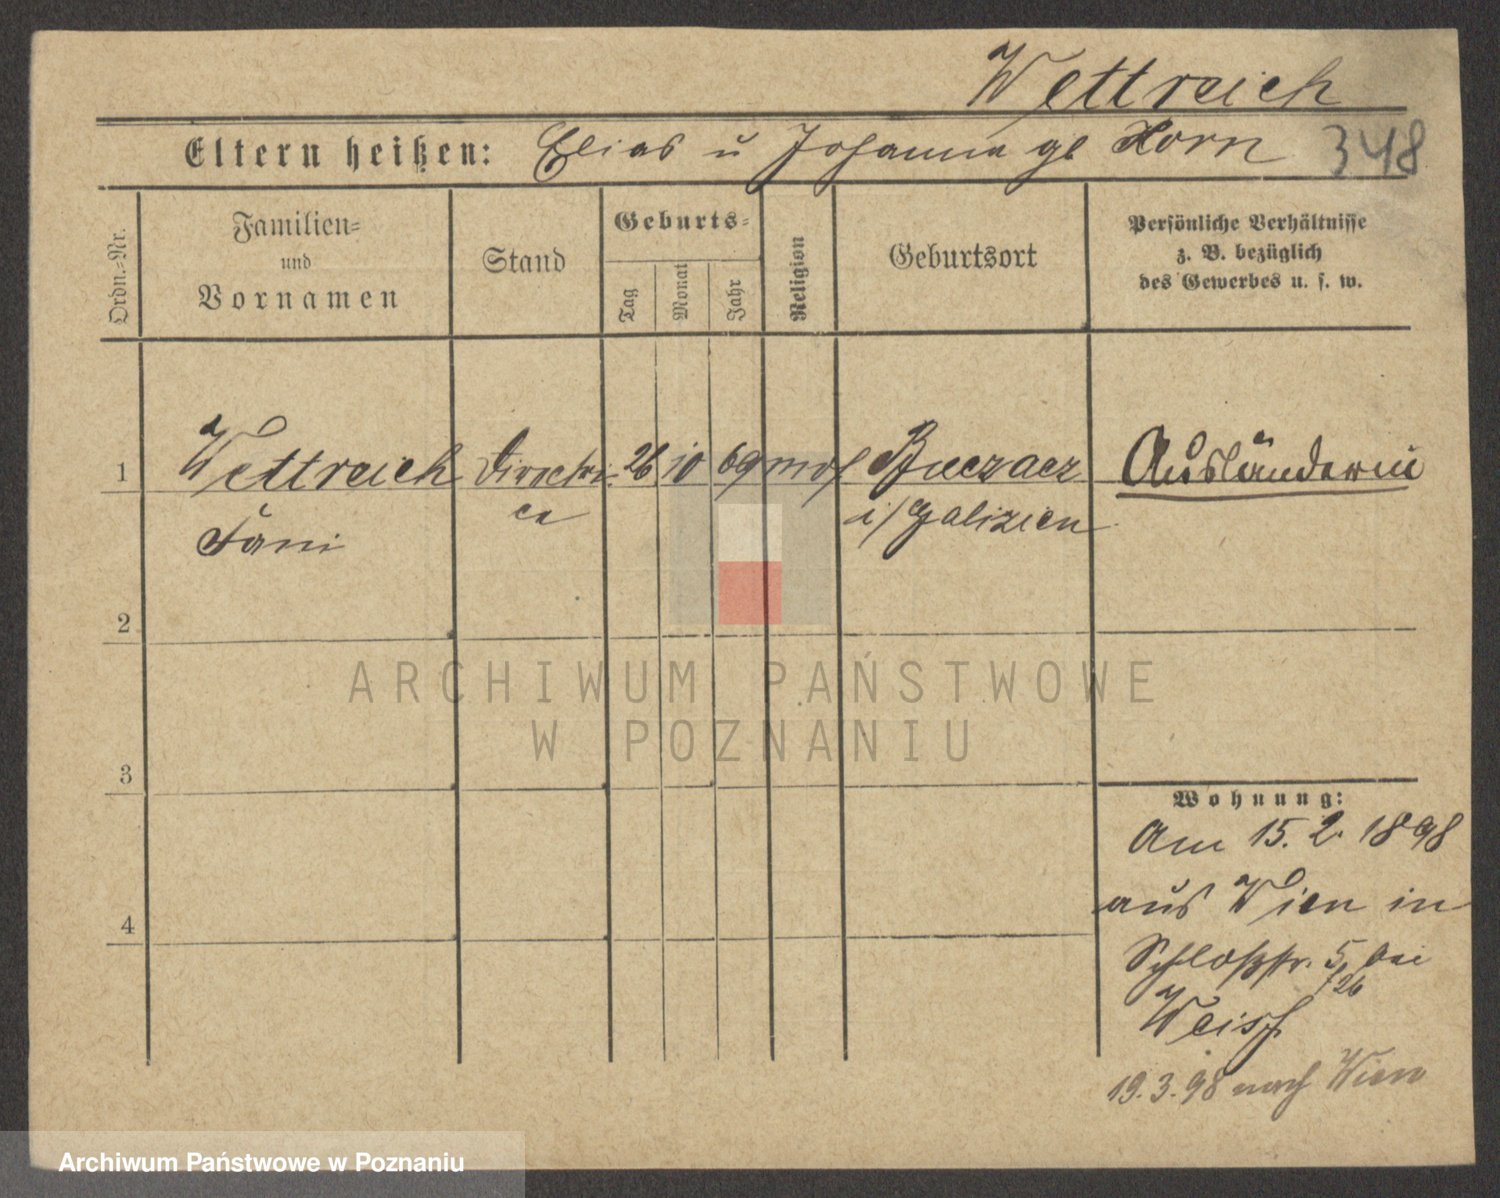 Wettreich
Eltern heißen: Elias u Johanna gb Horn 348
Ordn.=Nr.
Familien=
und
Vornamen
Stand
Geburts=
Tag
Monat
Jahr
Religion
Geburtsort
Persönliche Verhältnisse
z. B. bezüglich
des Gewerbes u. s. w.
1 Wettreich Directri 26 10 69 mos Buczacz Ausländerin
Fani ce i/Galizien
2
3
4
Wohnung:
Am 15. 2. 1898
aus Wien in
Schloßstr. 5 bei
/26
Weiss
19. 3. 98 nach Wien
ARCHIWUM PAŃSTWOWE
W POZNANIU
Archiwum Państwowe w Poznaniu